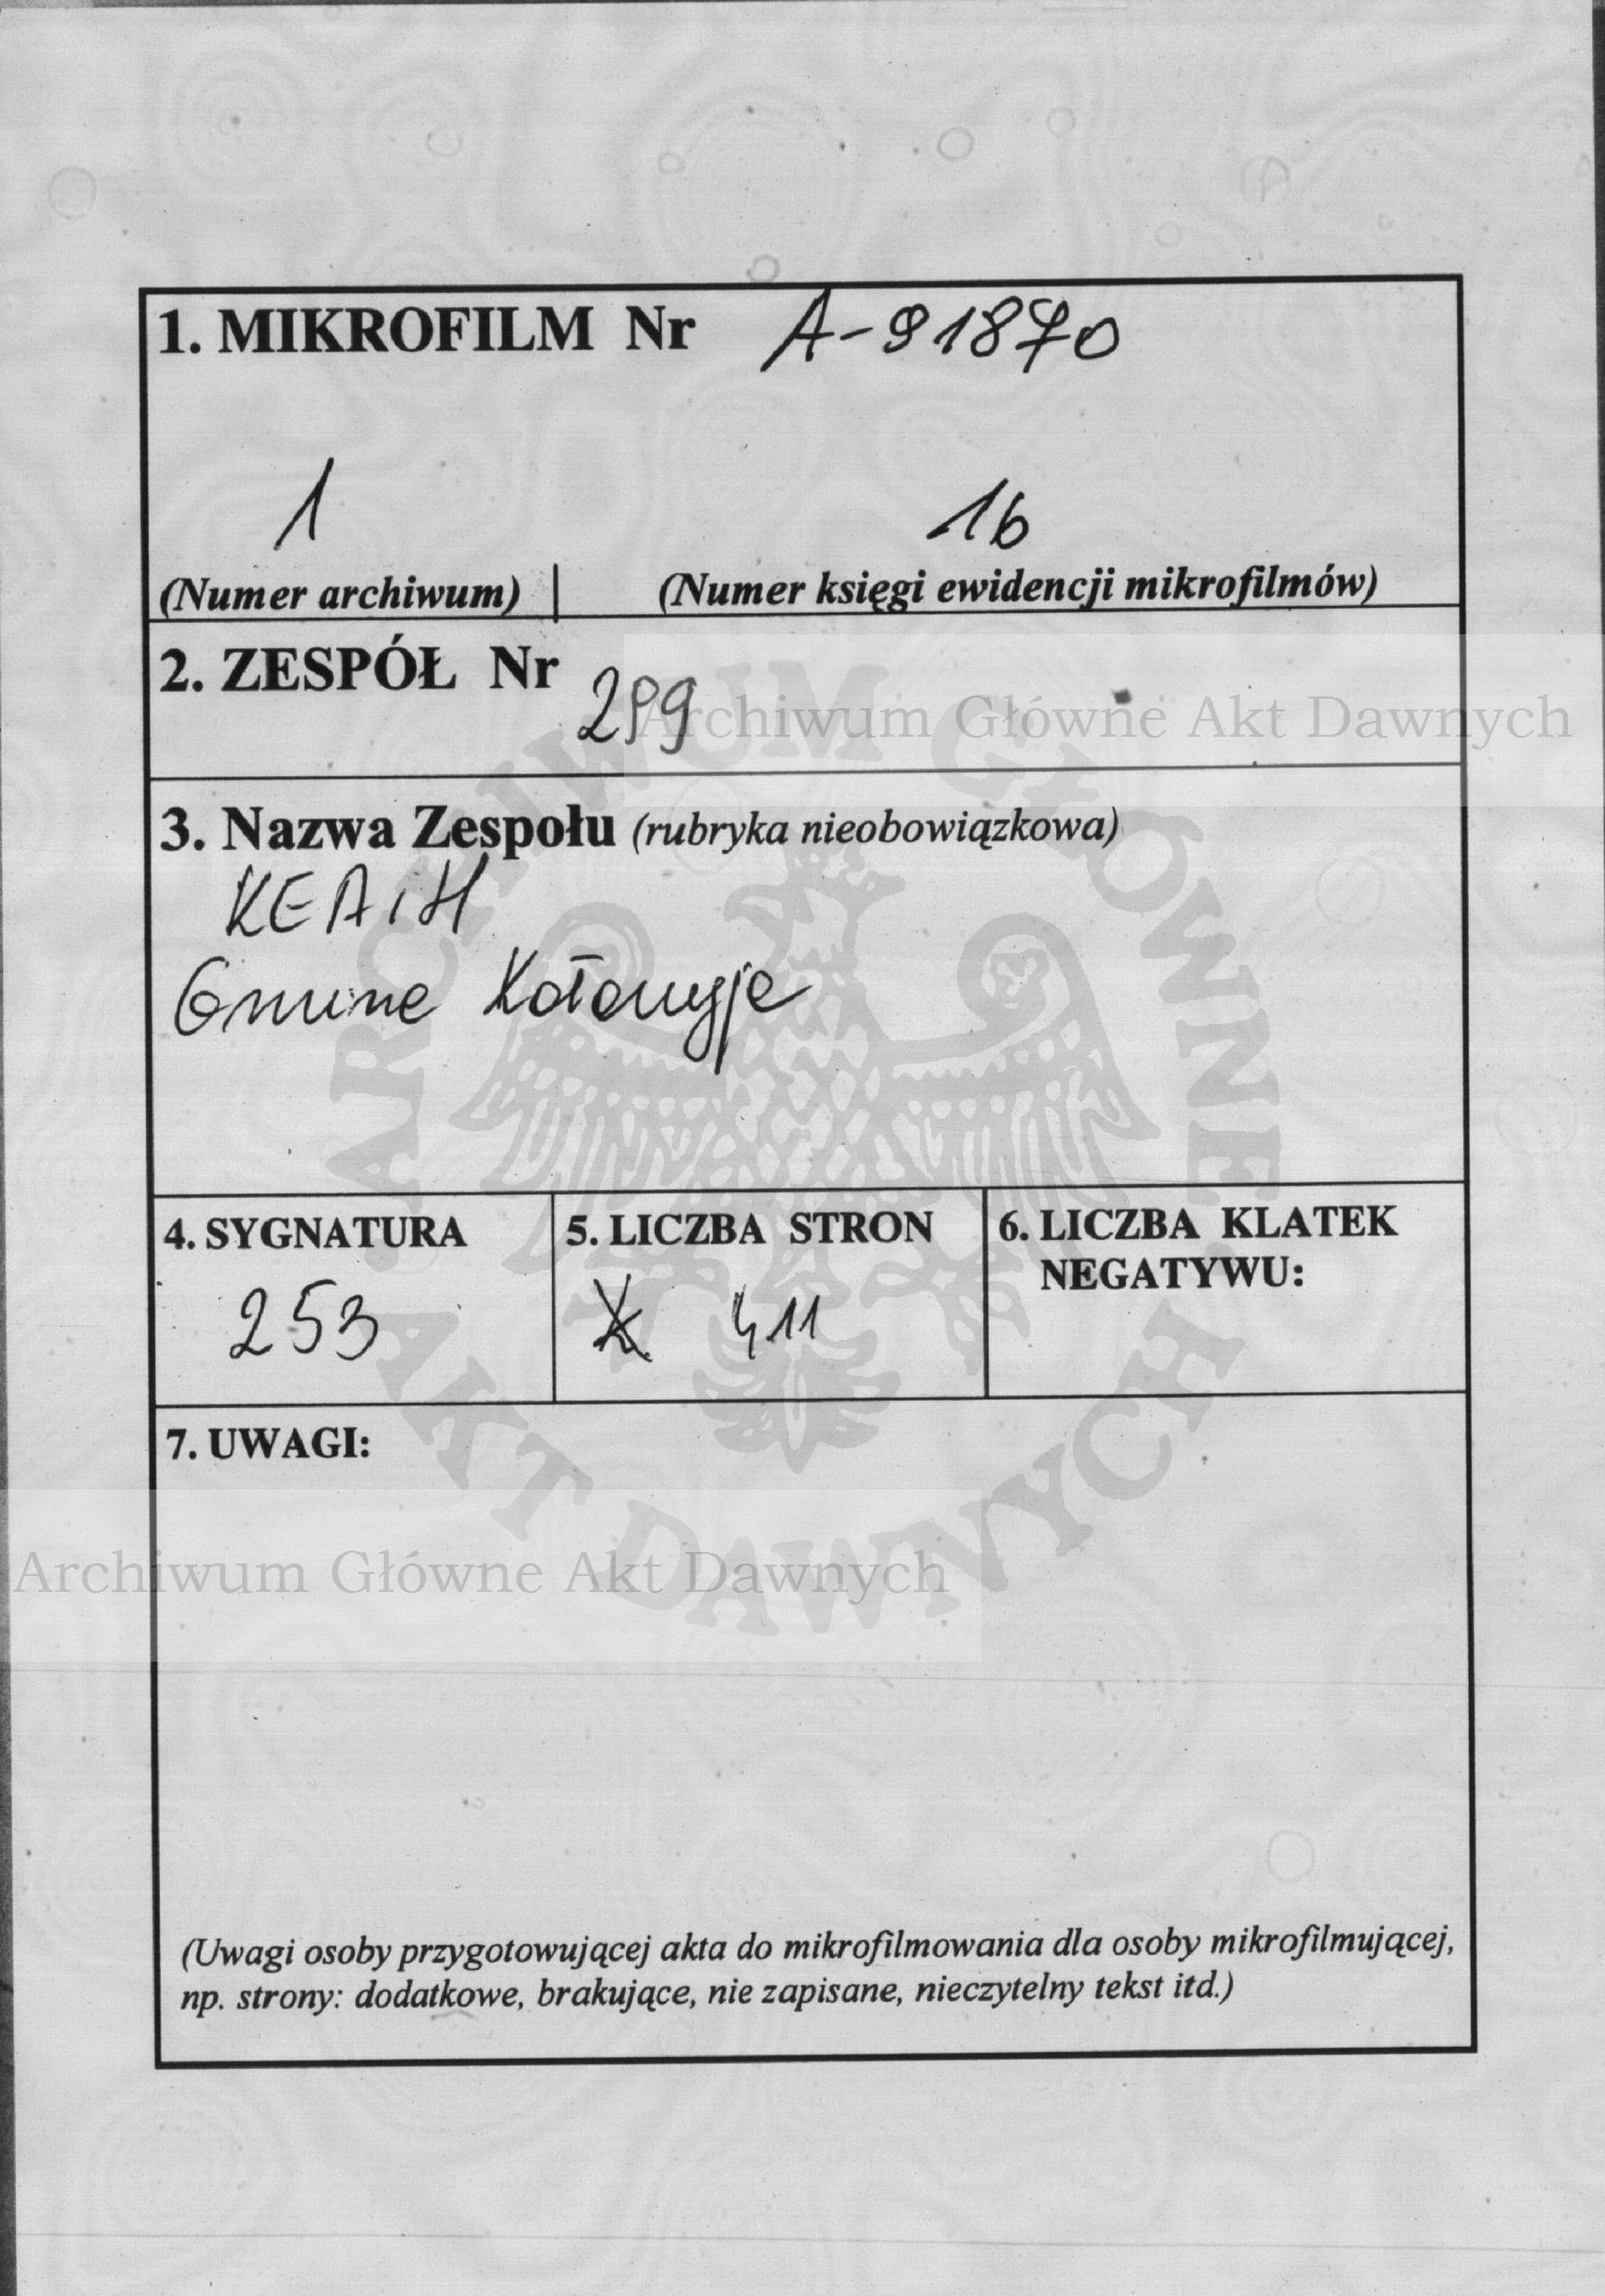 1. MIKROFILM Nr A-91870
1 16
(Numer archiwum) | (Numer księgi ewidencji mikrofilmów)
2. ZESPÓŁ Nr 299
Archiwum Główne Akt Dawnych
3. Nazwa Zespołu (rubryka nieobowiązkowa)
KEAiH
Gmina Kołomyja
4. SYGNATURA 5. LICZBA STRON 6. LICZBA KLATEK
NEGATYWU:
253 411
7. UWAGI:
Archiwum Główne Akt Dawnych
ARCHIWUM GŁÓWNE AKT DAWNYCH
(Uwagi osoby przygotowującej akta do mikrofilmowania dla osoby mikrofilmującej,
np. strony: dodatkowe, brakujące, nie zapisane, nieczytelny tekst itd.)